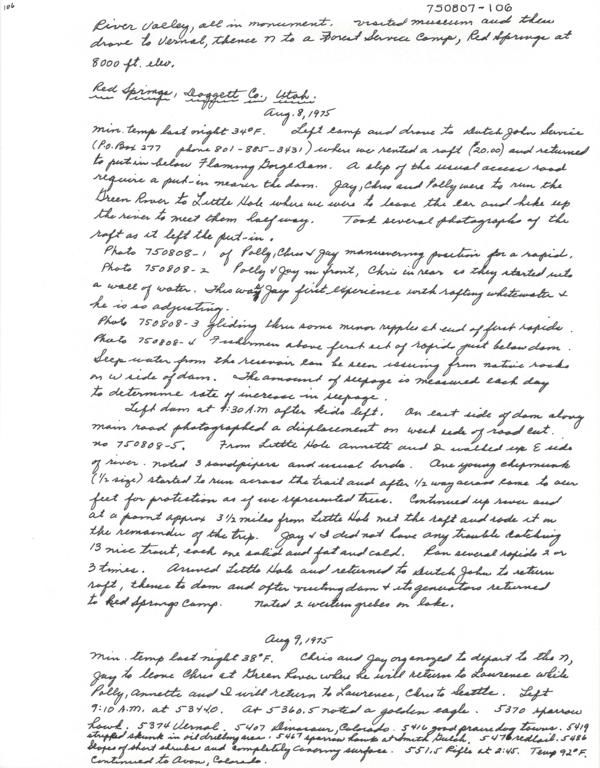 106
750807-106
River Valley, all in monument. Visited museum and then
drove to Vernal, thence N to a Forest Service Camp, Red Springs at
8000 ft. elev.
Red Springs, Daggett Co., Utah.
Aug. 8, 1975
Min. temp last night 34°F. Left camp and drove to Dutch John Service
(P.O. Box 277 phone 801-885-3431) where we rented a raft (20.00) and returned
to put in below Flaming Gorge Dam. A slip of the usual access road
require a put-in nearer the dam. Jay, Chris and Polly were to run the
Green River to Little Hole where we were to leave the car and hike up
the river to meet them half way. Took several photographs of the
raft as it left the put-in.
Photo 750808-1 of Polly, Chris & Jay maneuvering position for a rapid.
Photo 750808-2 Polly & Jay in front, Chris in rear as they started into
a wall of water. This was Jay first experience with rafting whitewater &
he is so adjusting.
Photo 750808-3 gliding thru some minor ripples at end of first rapids.
Photo 750808-4 Fishermen above first set of rapids just below dam.
Seep water from the resevoir can be seen issuing from native rocks
on W side of dam. The amount of seepage is measured each day
to determine rate of increase in seepage.
Left dam at 9:30 A.M after kids left. On east side of dam along
main road photographed a displacement on west side of road cut.
no 750808-5. From Little Hole Annette and I walked up E side
of river. Noted 3 sandpipers and usual birds. One young chipmunk
(1/2 size) started to run across the trail and after 1/2 way across came to our
feet for protection as if we represented trees. Continued up river and
at a point approx 3 1/2 miles from Little Hole met the raft and rode it on
the remainder of the trip. Jay & I did not have any trouble catching
13 nice trout, each one solid and fat and cold. Ran several rapids 2 or
3 times. Arrived Little Hole and returned to Dutch John to return
raft, thence to dam and after visiting dam & its generators returned
to Red Springs Camp. Noted 2 western grebes on lake.
Aug 9, 1975
Min. temp last night 38°F. Chris and Jay organized to depart to the N,
Jay to leave Chris at Green River where he will return to Lawrence while
Polly, Annette and I will return to Lawrence, Chris to Seattle. Left
9:10 A.M. at 5344.0. At 5360.5 noted a golden eagle. 5370 sparrow
hawk. 5374 Vernal. 5407 Dinosaur, Colorado. 5416 good prairie dog towns. 5419
striped skunk in oil drilling area. 5467 sparrow hawk at Smith Gulch. 5476 redtail. 5486
slopes of short shrubs and completely covering surface. 551.5 Rifle at 2:45. Temp 92°F.
Continued to Avon, Colorado.